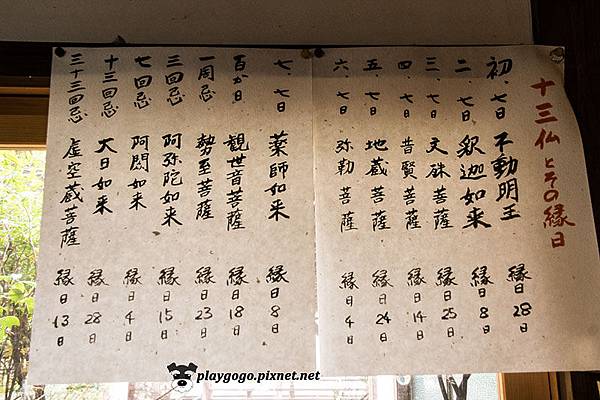 十三仏とその縁日
初、七日 不動明王 縁日 28日
二、七日 釈迦如来 縁日 8日
三、七日 文殊菩薩 縁日 25日
四、七日 普賢菩薩 縁日 14日
五、七日 地蔵菩薩 縁日 24日
六、七日 弥勒菩薩 縁日 4日
七、七日 薬師如来 縁日 8日
百か日 観世音菩薩 縁日 18日
一周忌 勢至菩薩 縁日 23日
三回忌 阿弥陀如来 縁日 15日
七回忌 阿閦如来 縁日 4日
十三回忌 大日如来 縁日 28日
三十三回忌 虚空蔵菩薩 縁日 13日
playgogo.pixnet.net